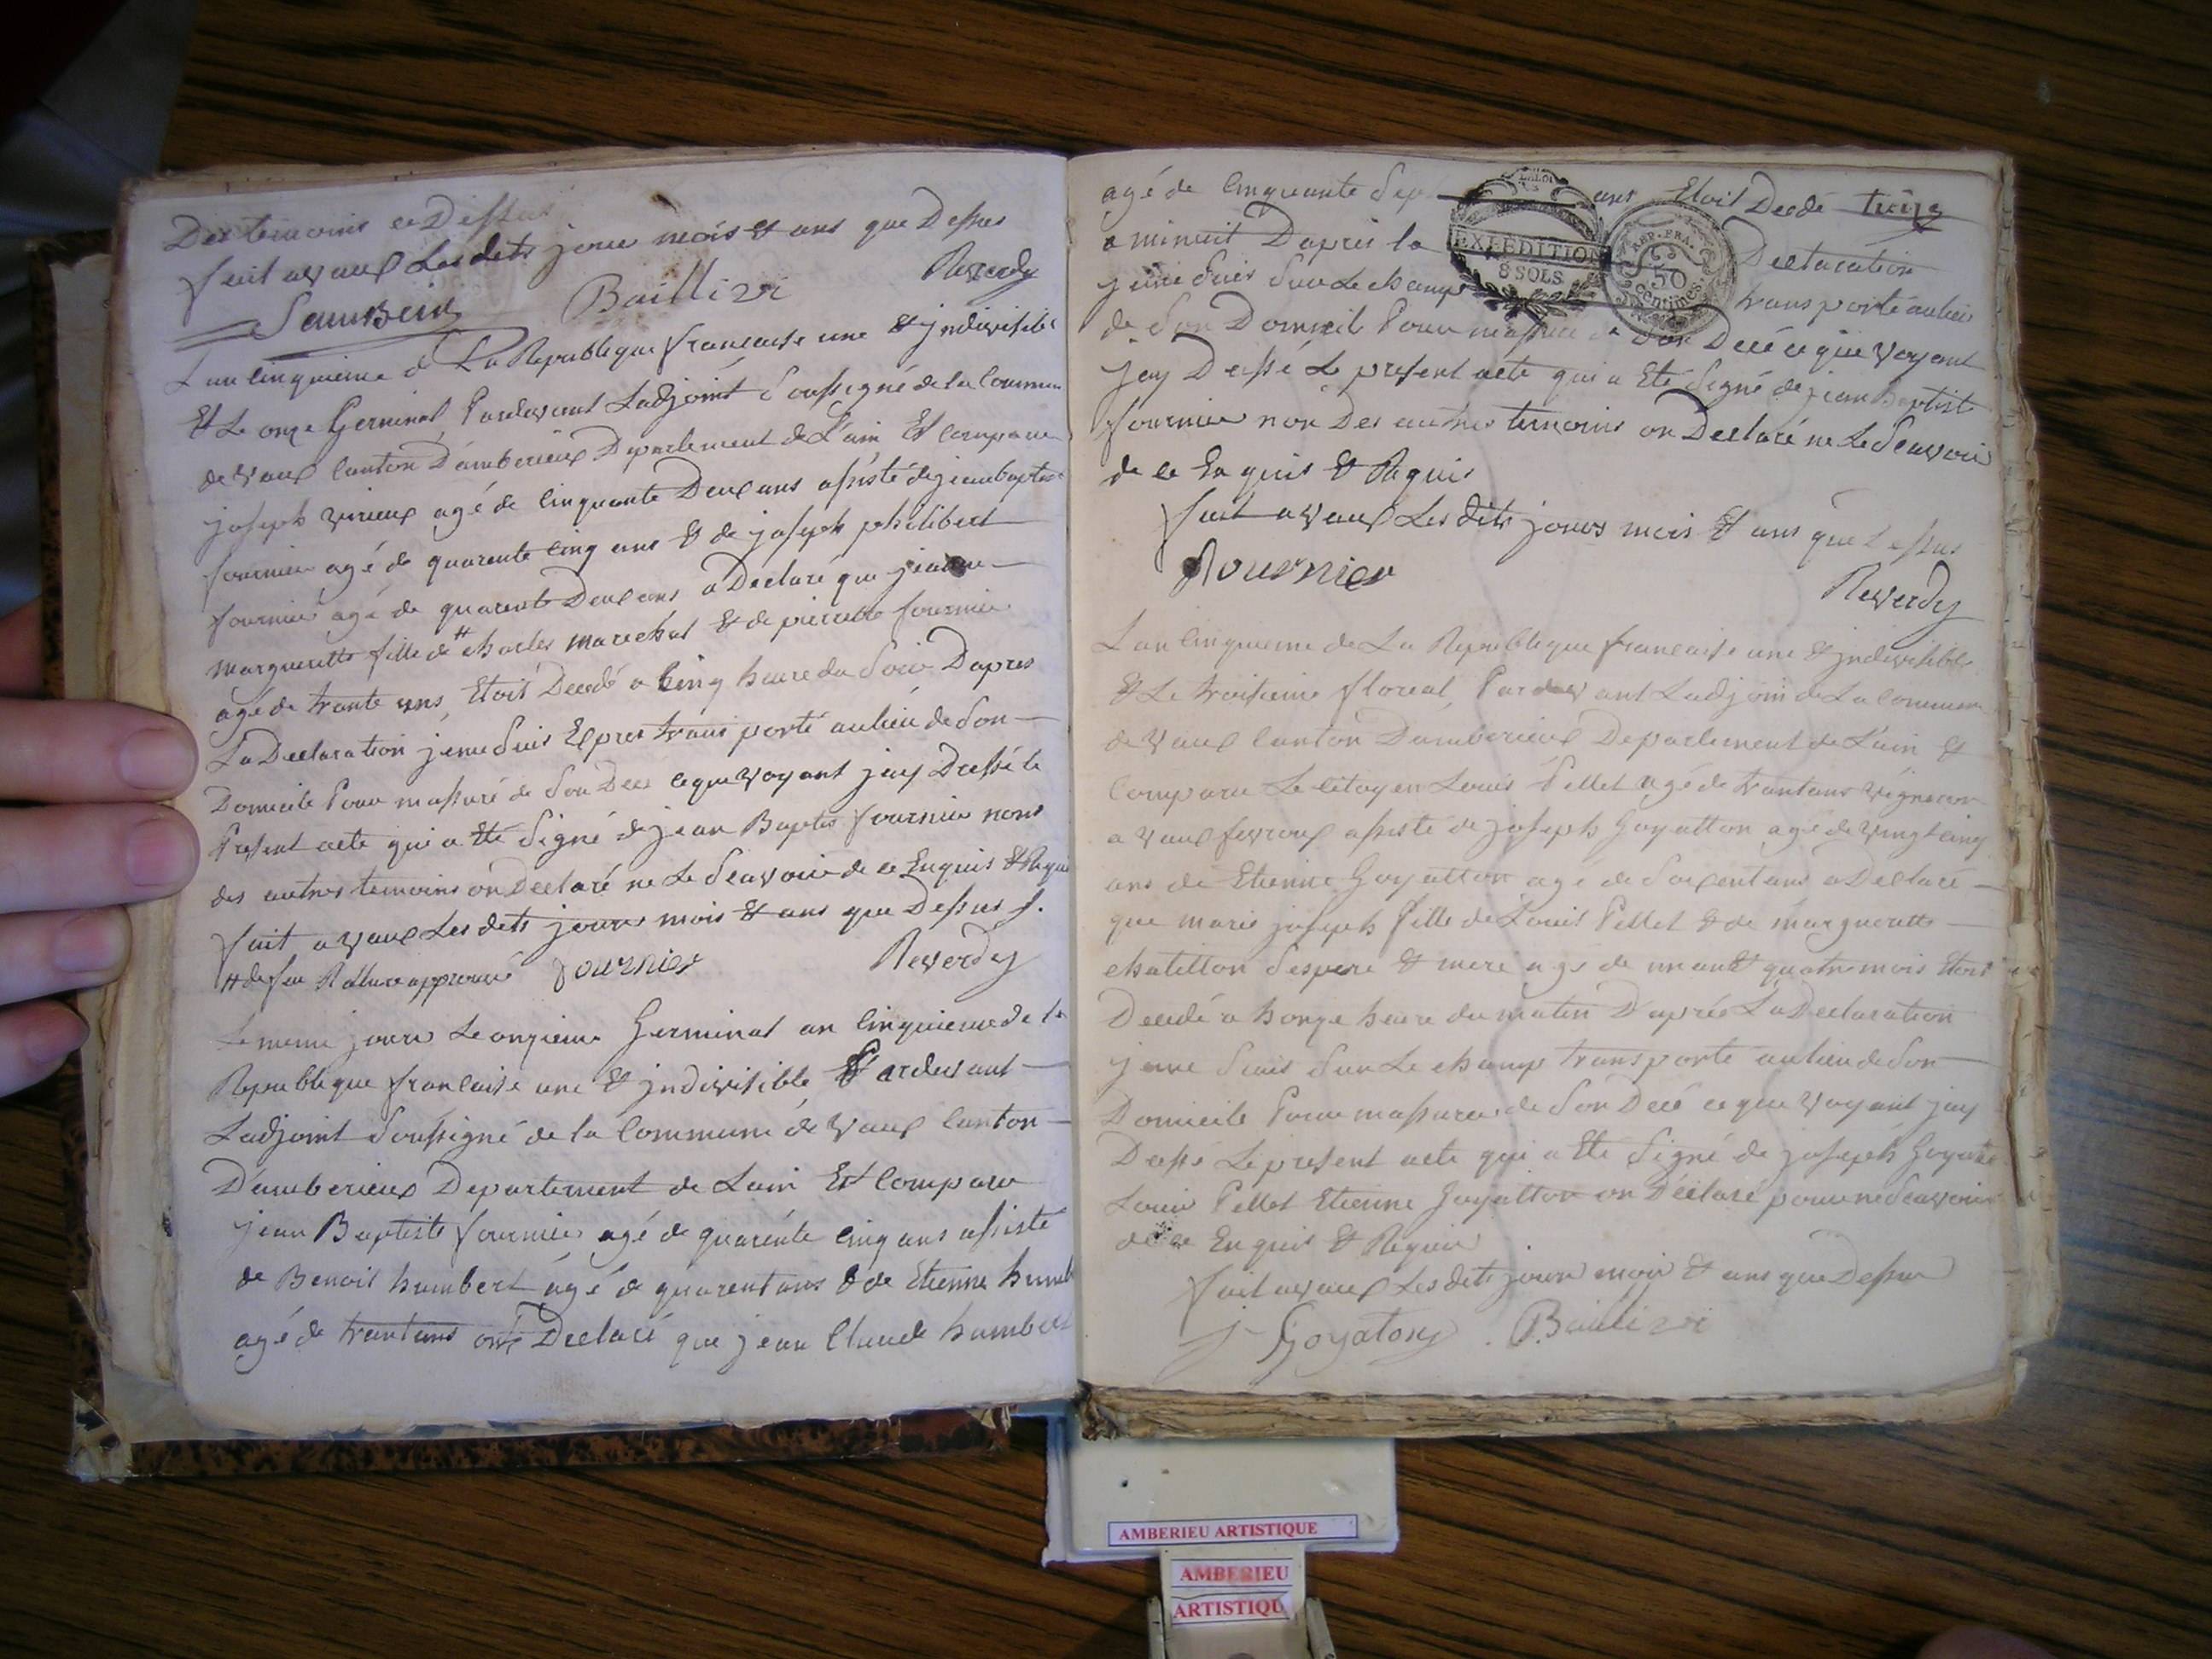 Des temoins ce Dessus
fait a vaux Les dits jour mois & ans que Dessus
Baillivi
Reverdy
Lan Cinquieme d La Republique francaise une & jndivisible
Et Le onze Germinal Pardevant Ladjoint Soussigné de la Commun
de vaux Canton D'amberieux Departement de L'ain Est comparu
joseph virieux agé de Cinquante Deux ans assisté de jean baptiste
fournier agé de quarente Cinq ans & de joseph philibert
fournier agé de quarente Deux ans a Declaré que jeanne
Margueritte fille de # charles marechal & de pierrette fournier
agé de trante ans Etoit Decedé a Cinq heure du Soir Dapres
La Declaration jeme Suis Expres transporté au lieu de Son
Domicile Pour massuré de Son Deces ce que voyant jay Dressé le
Present acte qui a Eté Signé de jean Baptis fournier nons
des autres temoins on Declaré ne Le Scavoir de ce Enquis & Requi
fait a vaux Les dits jours mois & ans que Dessus
# de feu Rature approuvé fournier
Reverdy
Le meme jours Le onzieme Germinal an Cinquieme de la
Republique francaise une & jndivisible Pardevant
Ladjoint Soussigné de la Commune de vaux Canton
D'amberieux Departement de Lain Est Comparu
jean Baptiste fournier agé de quarente Cinq ans assisté
de Benoit humbert agé de quarent ans & de Etienne humb
agé de trant ans ont Declaré que jean Claude humbert
agé de Cinquante Sep ans Etoit Decdé
a minuit Dapres la Declaration
jeme Suis Sur Le champ transporté au lieu
de Son Domicile Pour massuré de Son Decé ce que voyant
jay Dressé Le present acte qui a Eté Signé de jean Baptiste
fournier non Des autres temoins on Declaré ne Le Scavoir
de ce Enquis & Requis
fait a vaux Les dits jours mois & ans que Dessus
fournier
Reverdy
EXPEDITION
8 SOLS
REP. FRA.
50
centimes
Lan Cinquieme de La Republique francaise une & jndivisible
& Le troisieme floreal, Pardevant Ladjoin de La Commun
de vaux Canton Damberieux Departement de L'ain &
Comparu Le Citoyen Louis Pellet agé de trant ans vigneron
a vaux fevroux assisté de joseph Goyatton agé de vingt Cinq
ans de Etienne Goyatton agé de Soixent ans a Declaré
que marie joseph fille de Louis Pellet & de margueritte
chatillon Ses pere & mere agé de un ans & quatre mois Etoit
Decedé a honze heure du matin D'aprés La Declaration
jeme Suis Sur Le champ transporté au lieu de Son
Domicile Pour massurer de Son Decé ce que voyant jay
Dressé Le present acte qui a Eté Signé de joseph Goyatto
Louis Pellet Etienne Goyatton on Declaré pour ne Scavoir
de ce Enquis & Requis
fait a vaux Les dits jour mois & ans que Dessus
j Goyaton
Baillivi
AMBERIEU ARTISTIQUE
AMBERIEU
ARTISTIQU